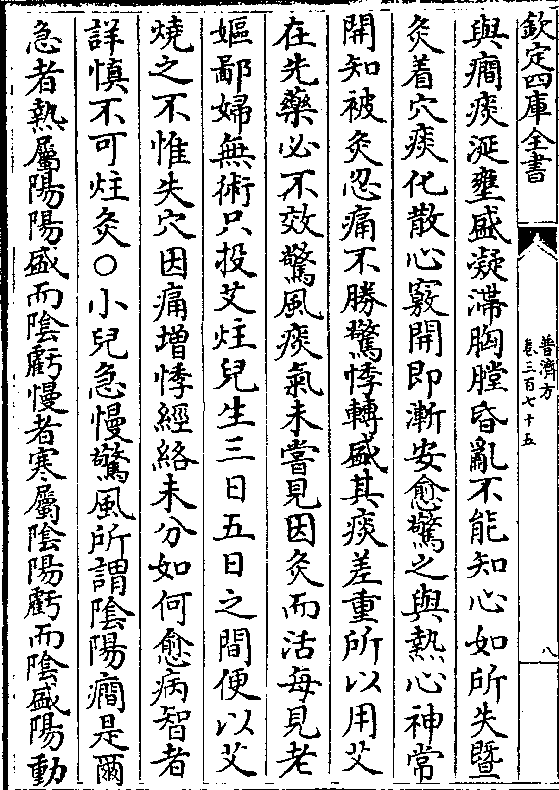 欽定四庫全書
普濟方
卷三百七十五
八
與癇痰涎壅盛凝滯胸膛昏亂不能知心如所失暨
灸着穴痰化散心竅開即漸安愈驚之與熱心神常
開知被灸忍痛不勝驚悸轉盛其痰差重所以用艾
在先藥必不效驚風痰氣未嘗見因灸而活每見老
嫗鄙婦無術只投艾炷兒生三日五日之間便以艾
燒之不惟失穴因痛增悸經絡未分如何愈病智者
詳慎不可炷灸○小兒急慢驚風所謂陰陽癇是爾
急者熱屬陽陽盛而陰虧慢者寒屬陰陽虧而陰盛陽動